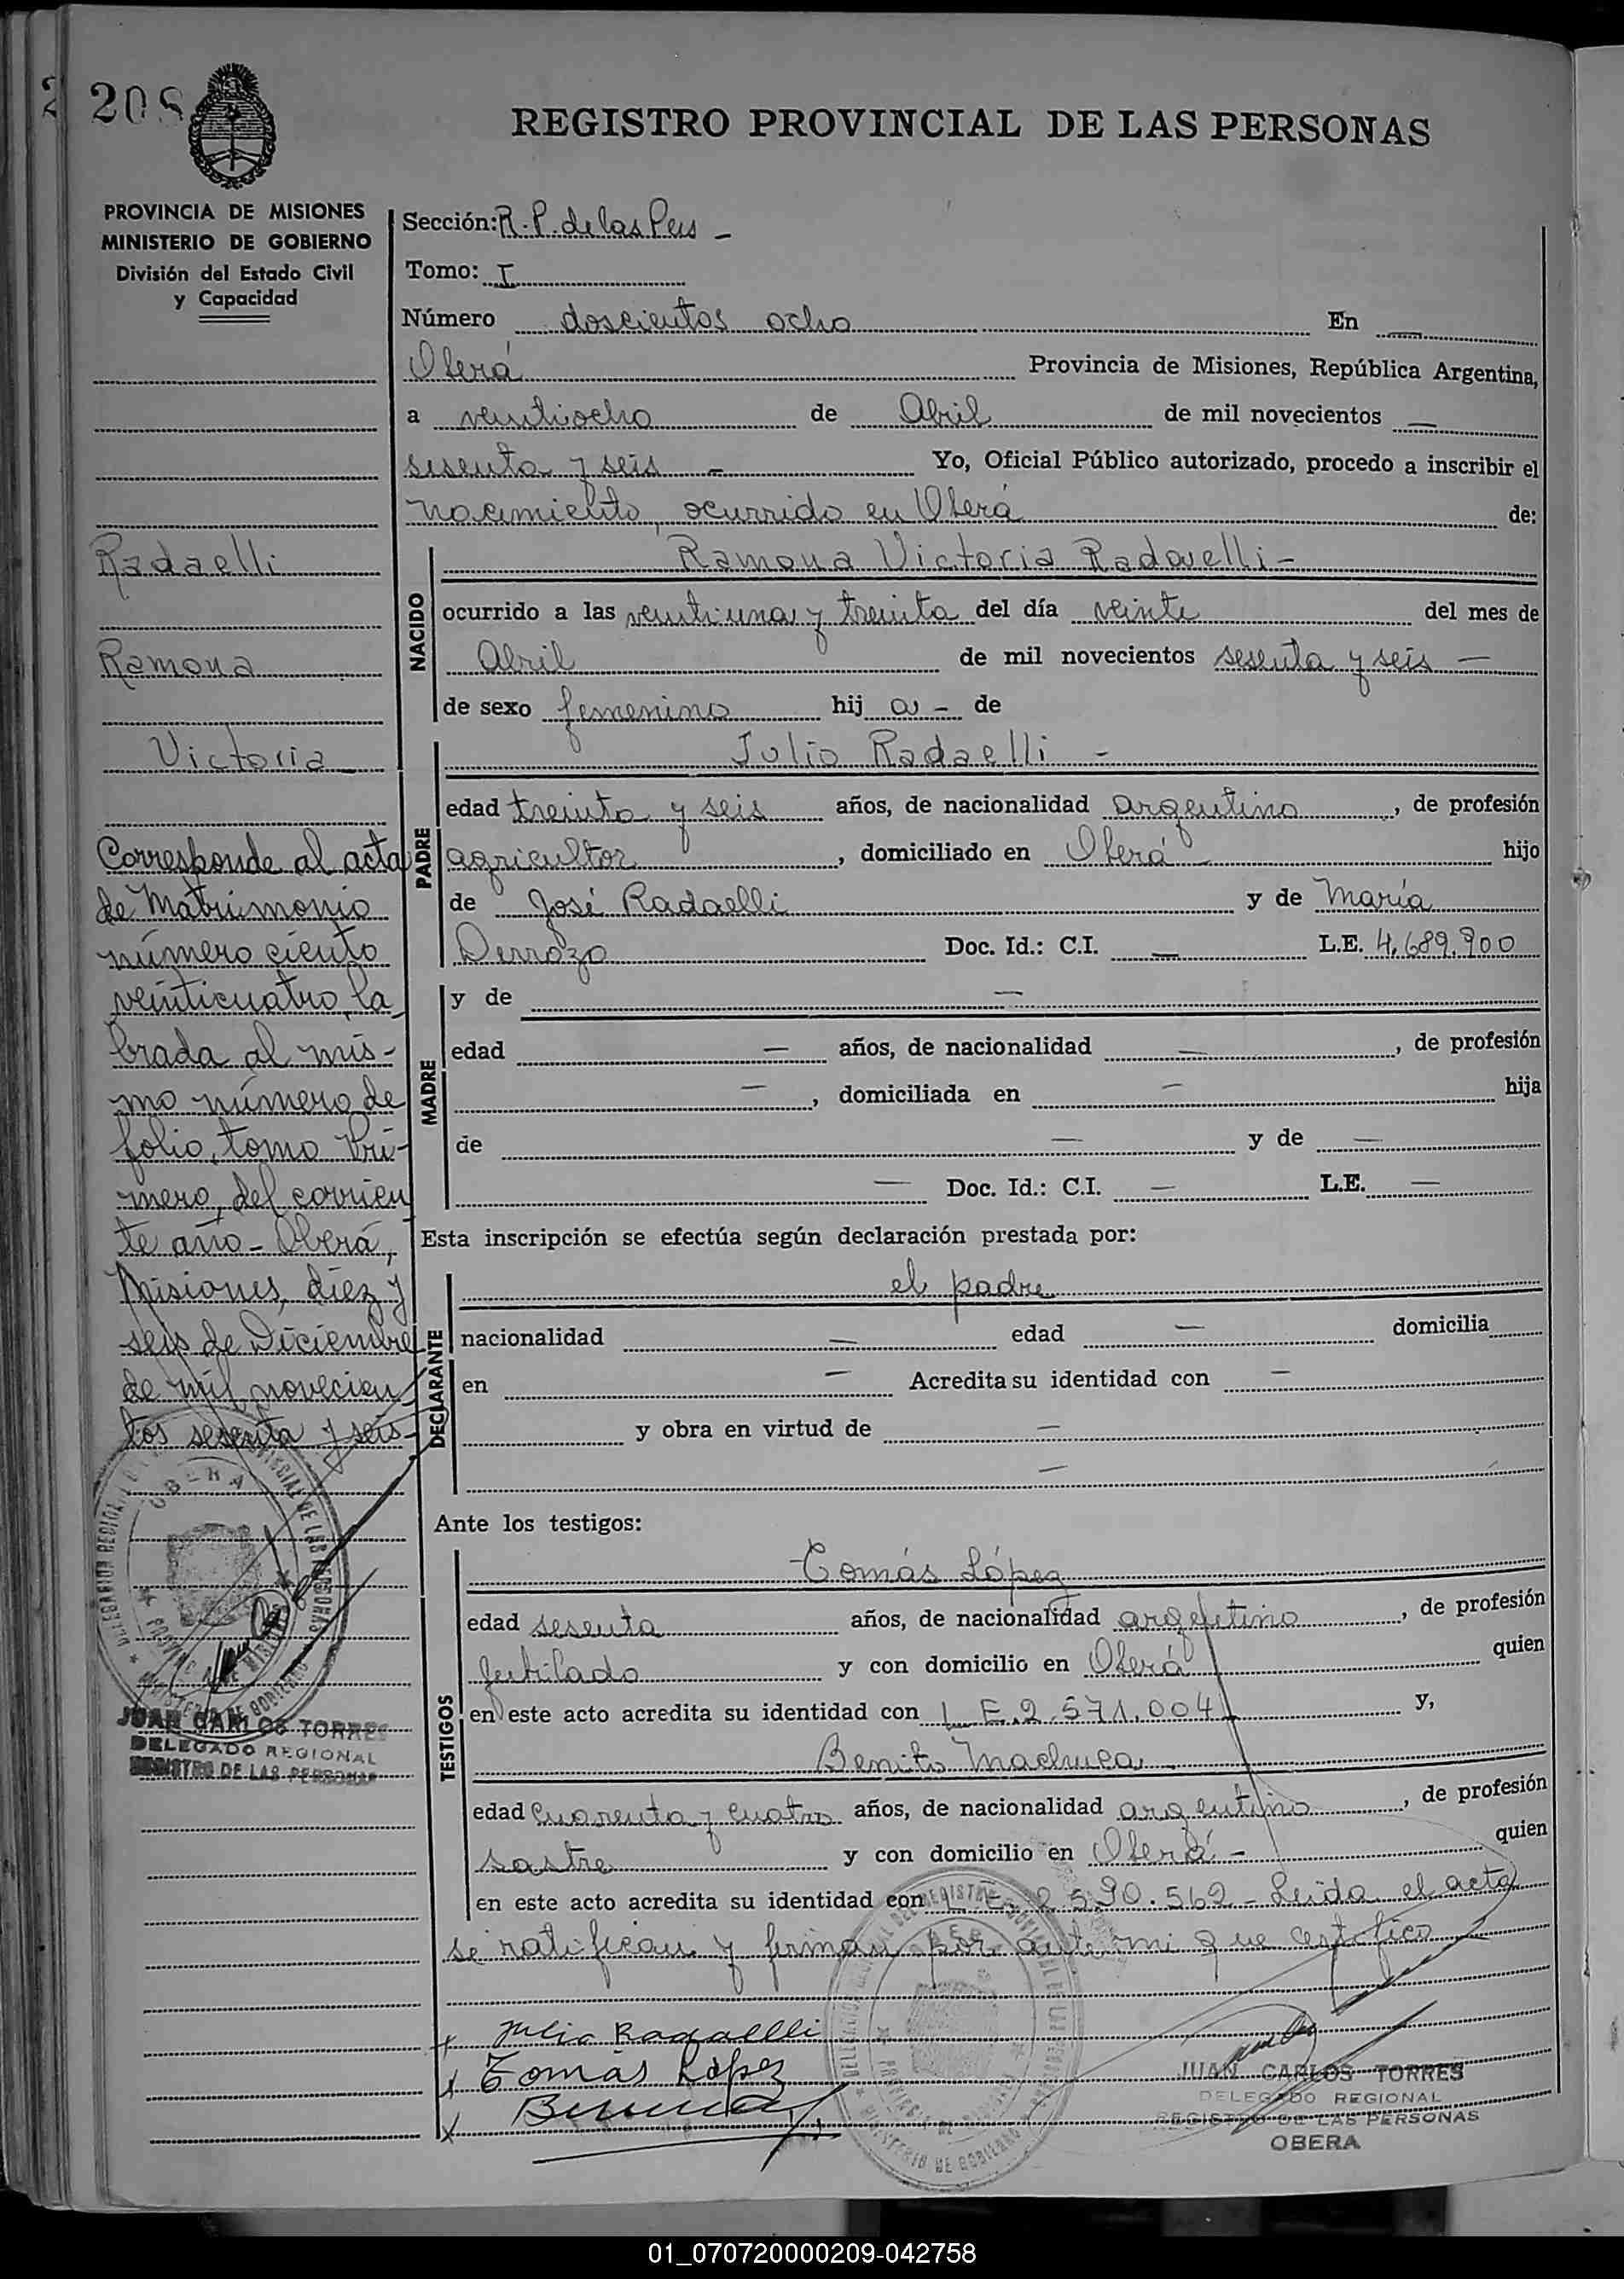 208
REGISTRO PROVINCIAL DE LAS PERSONAS
PROVINCIA DE MISIONES
MINISTERIO DE GOBIERNO
División del Estado Civil
y Capacidad
Radaelli
Ramona
Victoria
Corresponde al acta
de Matrimonio
número ciento
veinticuatro, la
brada al mis-
mo número de
folio, tomo Pri-
mero, del corrien
te año - Oberá,
Misiones, diez y
seis de Diciembre
de mil novecien
tos sesenta y seis-
OBERA
JUAN CARLOS TORRES
DELEGADO REGIONAL
REGISTRO DE LAS PERSONAS
Sección: R. P. de las Pers -
Tomo: I
Número doscientos ocho En —
Oberá Provincia de Misiones, República Argentina,
a veintiocho de Abril de mil novecientos —
sesenta y seis - Yo, Oficial Público autorizado, procedo a inscribir el
nacimiento, ocurrido en Oberá de:
NACIDO
Ramona Victoria Radaelli -
ocurrido a las veintiuna y treinta del día veinte del mes de
Abril de mil novecientos sesenta y seis —
de sexo femenino hij a - de
PADRE
Julio Radaelli -
edad treinta y seis años, de nacionalidad argentino, de profesión
agricultor, domiciliado en Oberá - hijo
de José Radaelli y de María
Derrozo Doc. Id.: C.I. — L.E. 4.689.900
MADRE
y de —
edad — años, de nacionalidad —, de profesión
—, domiciliada en — hija
de — y de —
— Doc. Id.: C.I. — L.E. —
Esta inscripción se efectúa según declaración prestada por:
DECLARANTE
el padre
nacionalidad — edad — domicilia
en — Acredita su identidad con —
y obra en virtud de —
—
Ante los testigos:
TESTIGOS
Tomás López
edad sesenta años, de nacionalidad argentino, de profesión
jubilado y con domicilio en Oberá quien
en este acto acredita su identidad con L E. 2.571.004 y,
Benito Machuca
edad cuarenta y cuatro años, de nacionalidad argentino, de profesión
sastre y con domicilio en Oberá - quien
en este acto acredita su identidad con L E. 2.590.562 - Leida el acta
se ratifican y firman por ante mi que certifico
x Julio Radaellli
x Tomás López
x
JUAN CARLOS TORRES
DELEGADO REGIONAL
REGISTRO DE LAS PERSONAS
OBERA
01_070720000209-042758